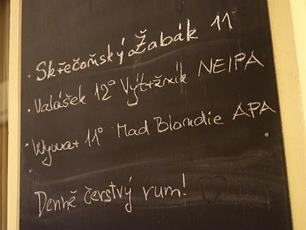 • Skřečoňský Žabák 11°
• Valášek 12° Výtržník NEIPA
• Wywar 11° Mad Blondie APA
Denně čerstvý rum!